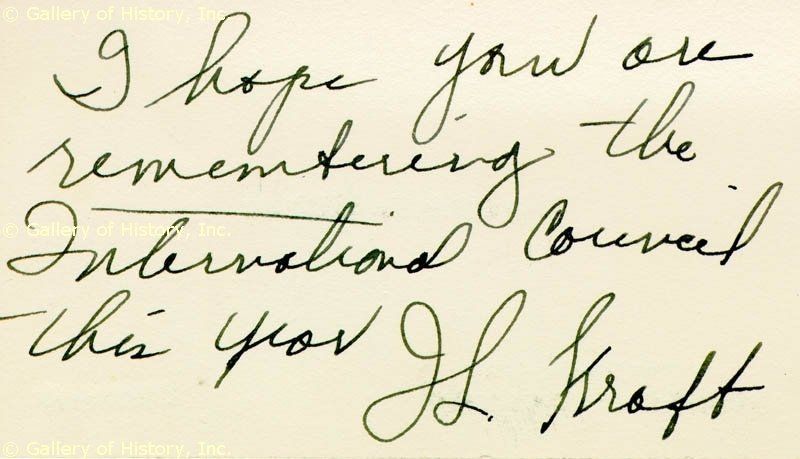 © Gallery of History, Inc.
I hope you are
remembering the
© Gallery of History, Inc.
International Council
this year JL. Kraft
© Gallery of History, Inc.